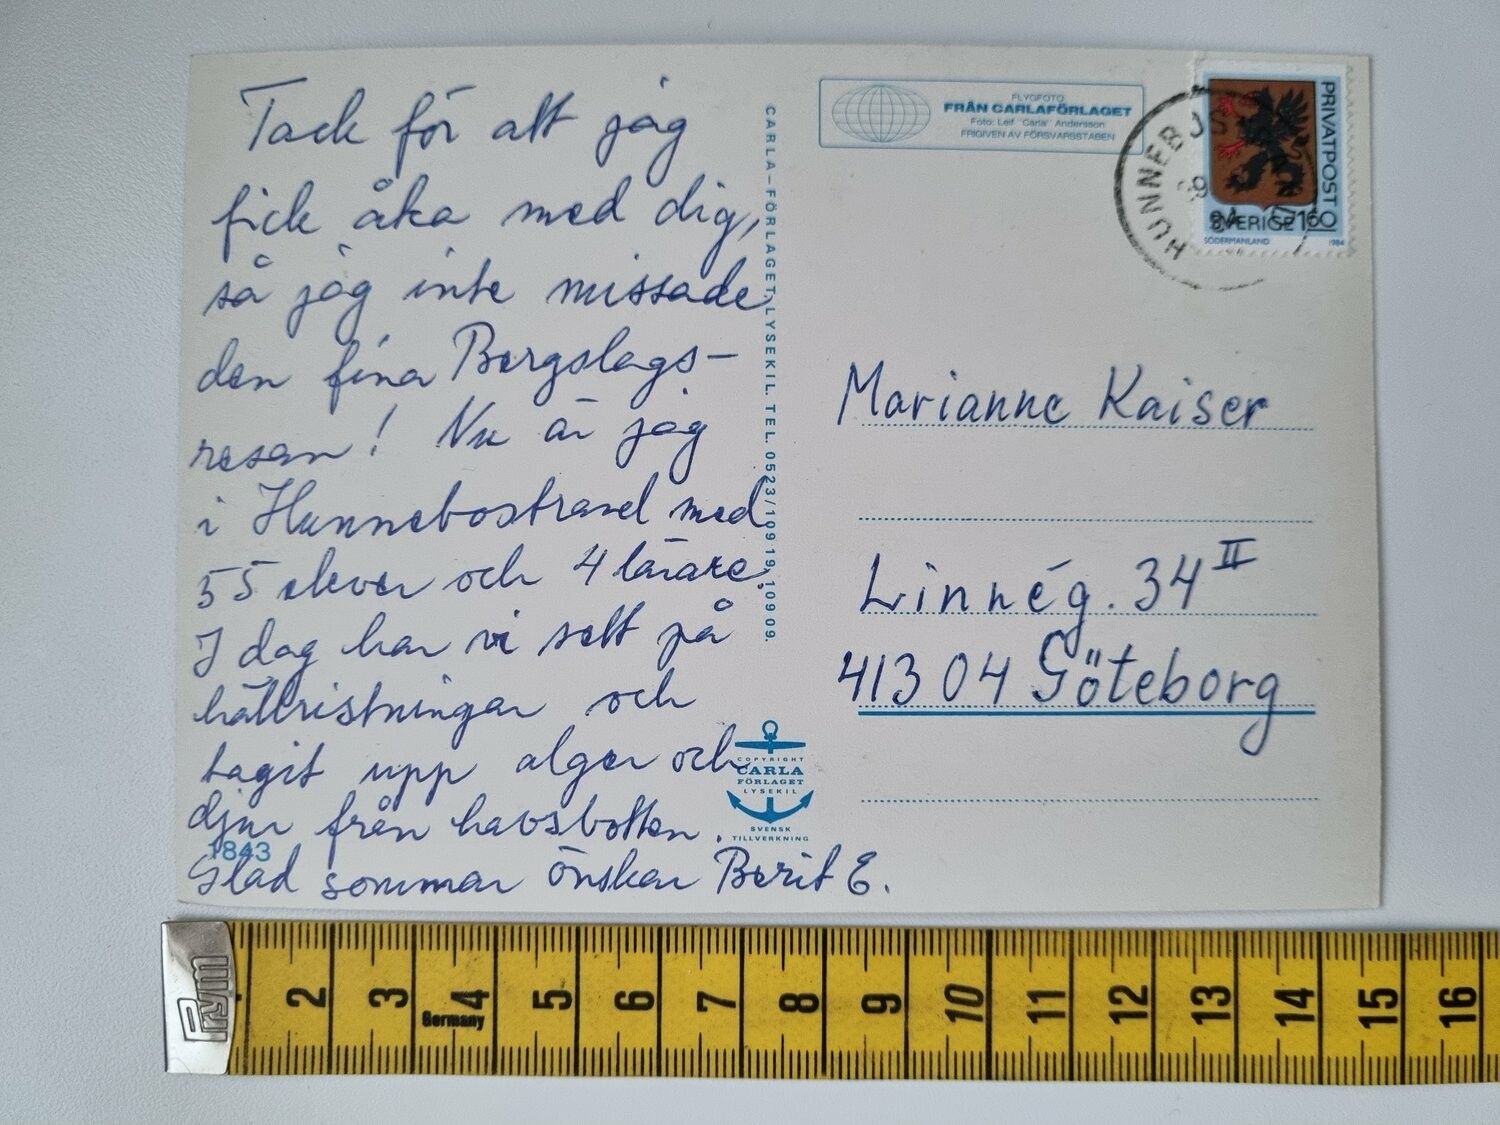 Tack för att jag
fick åka med dig,
så jag inte missade
den fina Bergslags-
resan! Nu är jag
i Hunnebostrand med
55 elever och 4 lärare.
I dag har vi sett på
hällristningar och
tagit upp alger och
djur från havsbotten.
Glad sommar önskar Berit E.
1843
CARLA-FÖRLAGET, LYSEKIL. TEL. 0523/109 19, 109 09.
COPYRIGHT
CARLA
FÖRLAGET
LYSEKIL
SVENSK
TILLVERKNING
FLYGFOTO
FRÅN CARLAFÖRLAGET
Foto: Leif "Carla" Andersson
FRIGIVEN AV FÖRSVARSSTABEN
PRIVATPOST
SVERIGE 160
SÖDERMANLAND 1984
Marianne Kaiser
Linnég. 34 II
413 04 Göteborg
Prym
2 3 4 5 6 7 8 9 10 11 12 13 14 15 16
Germany